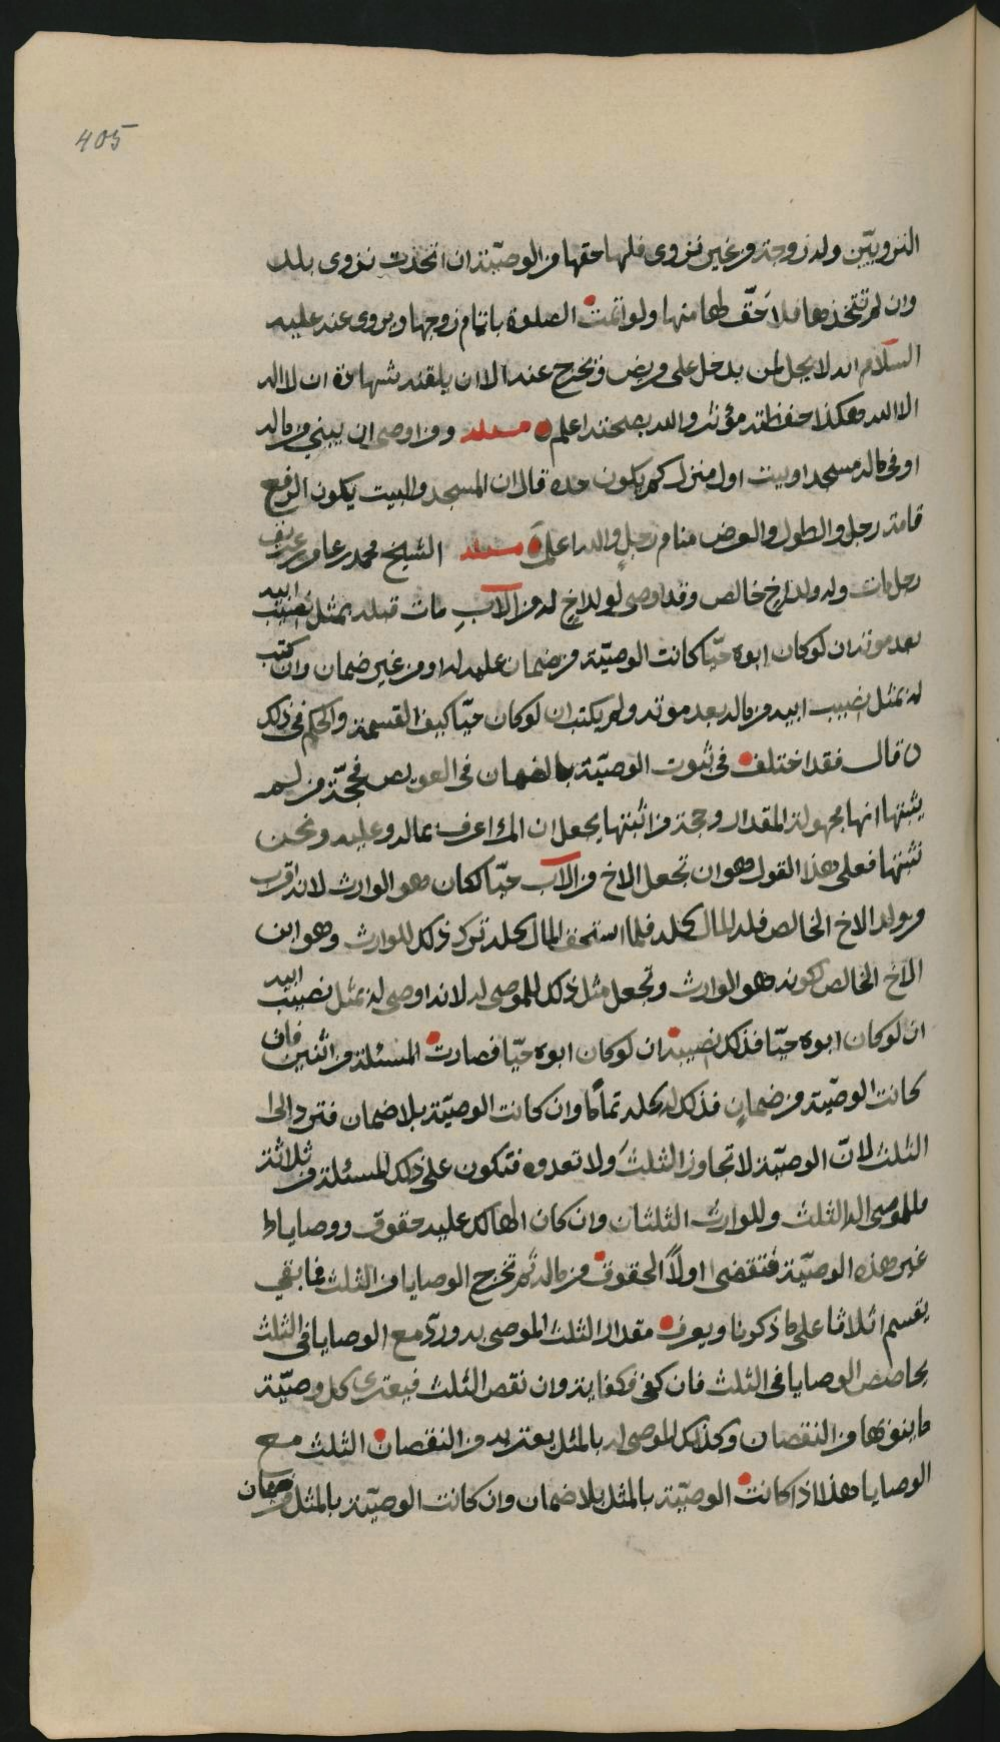 405
النزويّين وله زوجة من غير نزوى فلها حقها من الوصيّة ان اتخذت نزوى بلد
وان لم تتخذها فلا حَقّ لها منها ولو اتمت الصلوة باتمام زوجها ويروى عنه عليه
السلام انه لا يحل لمن يدخل على مريض فيخرج عنه الا ان يلقنه شهادة ان لا اله
الا الله وهكذا حفظته مؤثر والله بصحته اعلم مسئلة ومن اوصى ان يبنى من ماله
او في ماله مسجد او بيت او منزل كم يكون حده قال ان المسجد والبيت يكون الرفع
قامة رجل والطول والعرض منام رجل والله اعلم مسئلة الشيخ محمد بن عامر عريق
رجل مات وله ولد اخ خالص وقد اوصى لولد اخ له من الابِ مات قبله بمثل نصيب ابيه
بعد موته ان لو كان ابوه حيّا كانت الوصيّة من ضمان عليه له او من غير ضمان وان كتب
له بمثل نصيب ابيه من ماله بعد موته ولم يكتب ان لو كان حيّا كيف القسمة والحكم في ذلك
قال فقد اختلف في ثبوت الوصيّة بالضمان في العويص فحجّة من لم
يثبتها انها مجهولة المقدار وحجة من اثبتها يجعل ان المرء اعرف بماله وعليه ونحن
نثبتها فعلى هذا القول وهو ان تجعل الاخ من الاب حيّا لكان هو الوارث لانه اقرب
من ولد الاخ الخالص فله المال كله فلما استحق المال كله ترك ذلك للوارث وهو ابن
الاخ الخالص لكونه هو الوارث وتجعل مثل ذلك للموصى له لانه اوصى له بمثل نصيب ابيه
ان لو كان ابوه حيّا فذلك نصيبه ان لو كان ابوه حيّا فصارت المسئلة من اثنين فان
كانت الوصيّة من ضمانٍ فذلك له كله تماما وان كانت الوصيّة بلا ضمان فترد الى
الثلث لانّ الوصيّة لا تجاوز الثلثَ ولا تعدوه فتكون على ذلك المسئلة من ثلاثة
للموصى له الثلث وللوارث الثلثان وان كان الهالك عليه حقوق ووصايا
غير هذه الوصيّة فتقضى اولاً الحقوق من ماله ثم تخرج الوصايا من الثلث فما بقي
يقسم اثلاثا على ما ذكرنا ويعرف مقدار الثلث الموصى به وردّ مع الوصايا في الثلث
يحاصص الوصايا في الثلث فان كفى فكفاية وان نقص الثلث فيعتري كل وصيّة
ما ينوبها من النقصان وكذلك الموصى له بالمثل يعتريه من النقصان الثلث مع
الوصايا هذا اذا كانت الوصيّة بالمثل بلا ضمان وان كانت الوصيّة بالمثل من ضمان